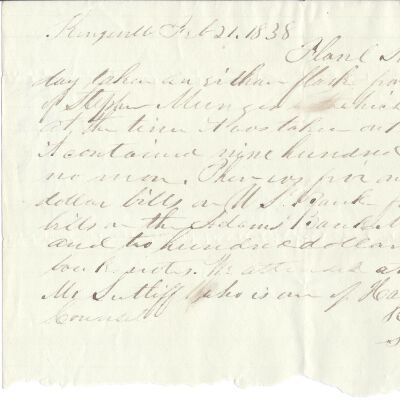 Kingsville Feb 21. 1838
I have
day taken an
of Stephen Munger which
at the time it was taken out
it contained nine hundred
no more. There was five
dollar bills on U.S. Bank
bills on the Adams Bank
and two hundred dollar
bank notes. We attended
Mr Sutliff who is one of Ha
Counsel